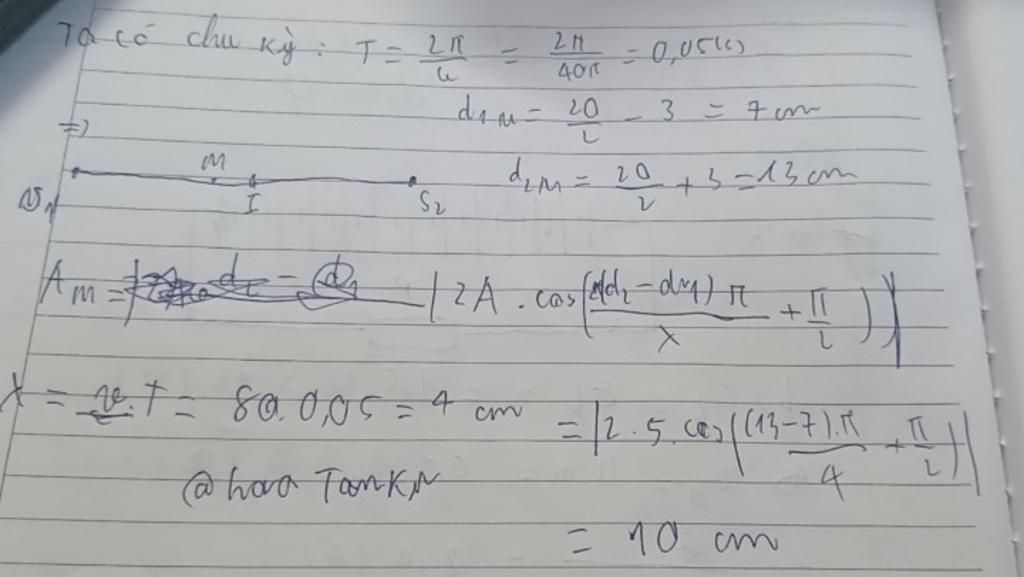 Ta có chu kỳ: T = 2π/ω = 2π/40π = 0,05(s)
d1M = 20/2 - 3 = 7 cm
=>
M
d2M = 20/2 + 3 = 13 cm
S1 I S2
AM = |2A . cos((d2 - d1)π/λ + π/2)|
λ = v.T = 80.0,05 = 4 cm
= |2.5.cos((13-7).π/4 + π/2)|
= 10 cm